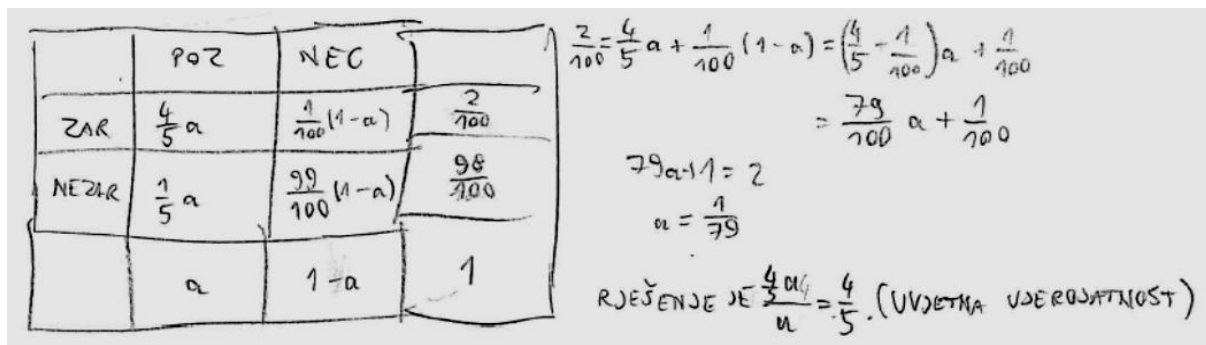 POZ NEG
ZAR 4/5 a 1/100 (1-a) 2/100
NEZAR 1/5 a 99/100 (1-a) 98/100
a 1-a 1
2/100 = 4/5 a + 1/100 (1-a) = (4/5 - 1/100) a + 1/100
= 79/100 a + 1/100
79a+1 = 2
a = 1/79
RJEŠENJE JE 4/5 a / a = 4/5. (UVJETNA VJEROJATNOST)